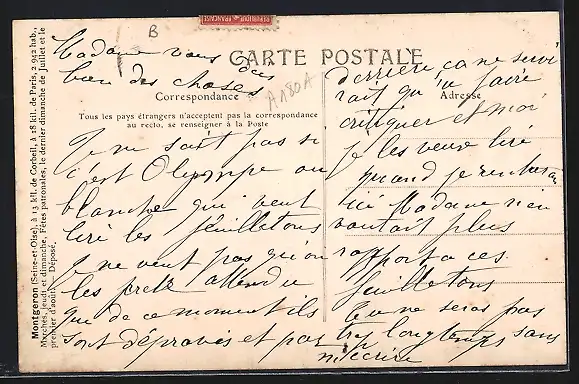 B
FRANÇAISE
CARTE POSTALE
Correspondance
Adresse
Tous les pays étrangers n'acceptent pas la correspondance
au recto, se renseigner à la Poste
Montgeron (Seine-et-Oise), à 13 kil. de Corbeil, à 18 kil. de Paris, 2 942 hab.,
Marchés, jeudi et dimanche, Fêtes patronales, le dernier dimanche de juillet et le
premier d'août. — Déposé.
A180A
Madame vous dis
bien des choses
Je ne sait pas si
c'est Olympe ou
blanche qui veut
lire les feuilletons
Je ne veut pas qu'on
les prete attendu
que de ce moment ils
sont dépravés et pas
derriere ca ne servi
rait qu'a faire
critiquer et moi
je les veux lire
quand je
ici Madame n'en
voulait plus
rapport a ces
feuilletons
tu ne seras pas
tres longtemps sans
m'ecrire